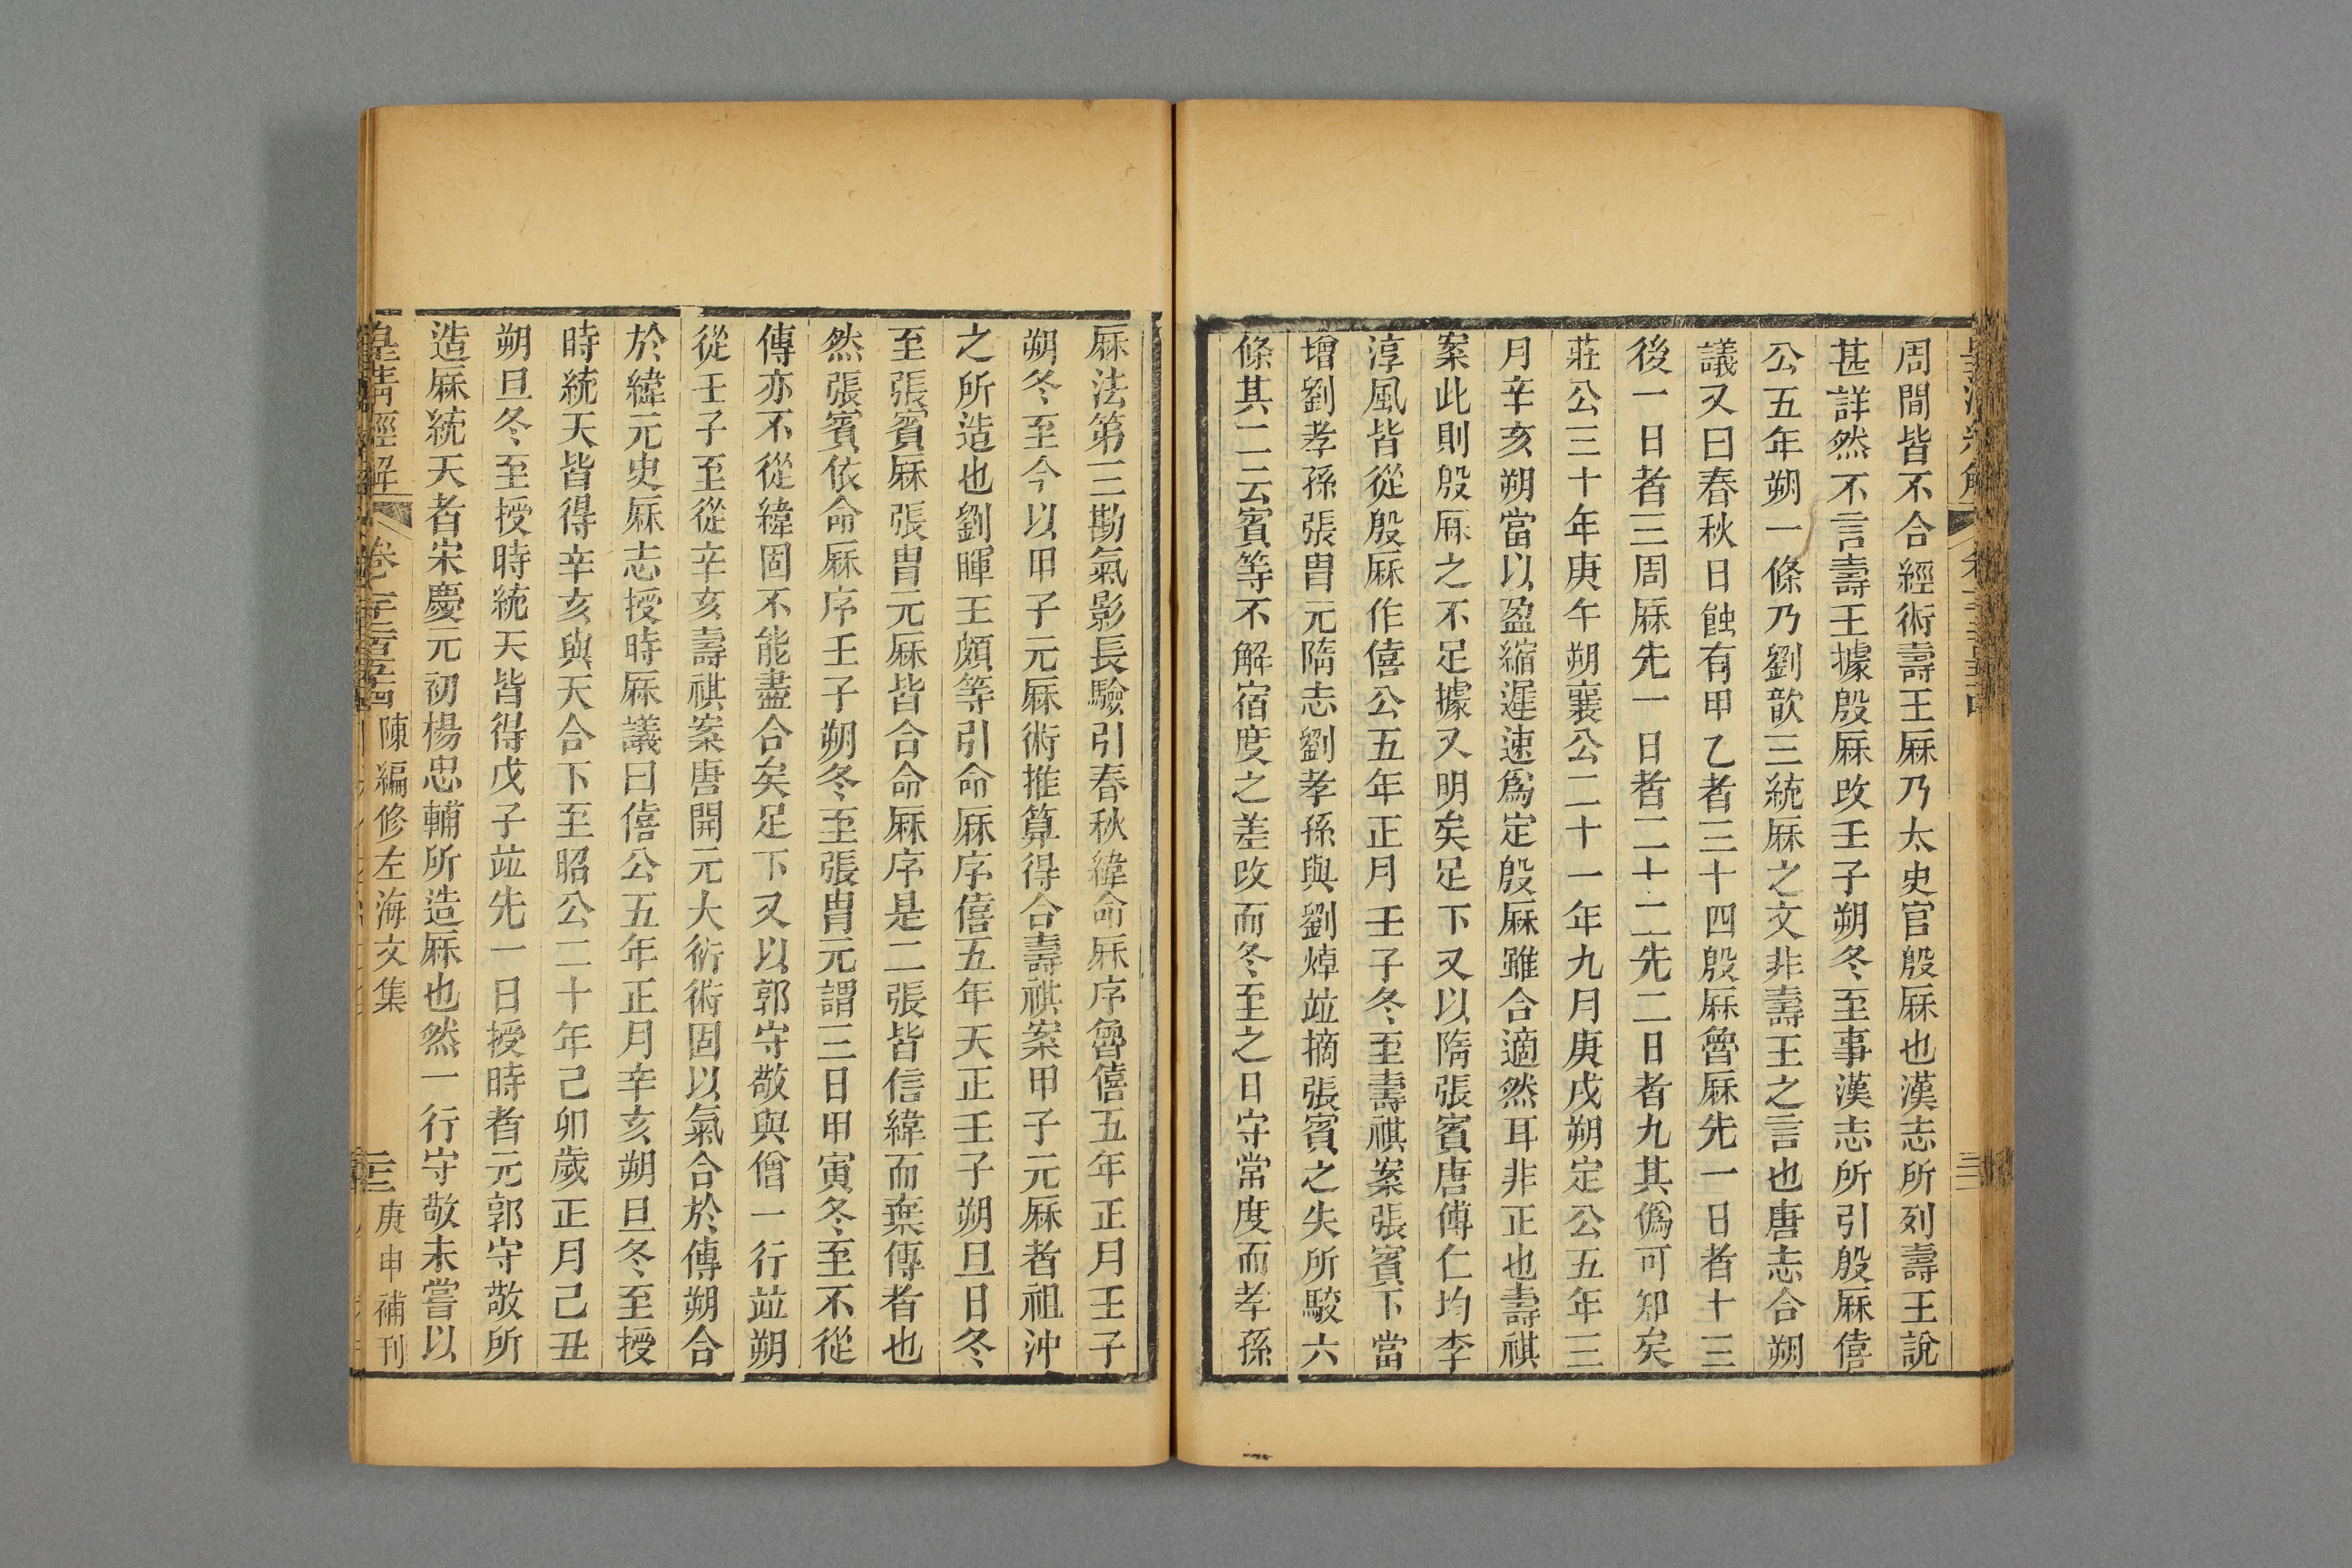 周間皆不合經術壽王厤乃太史官殷厤也漢志所列壽王說
甚詳然不言壽王據殷厤攺壬子朔冬至事漢志所引殷厤僖
公五年朔一條乃劉歆三統厤之文非壽王之言也唐志合朔
議又曰春秋日蝕有甲乙者三十四殷厤魯厤先一日者十三
後一日者三周厤先一日者二十二先二日者九其僞可知矣
莊公三十年庚午朔襄公二十一年九月庚戌朔定公五年三
月辛亥朔當以盈縮遲速爲定殷厤雖合適然耳非正也壽祺
案此則殷厤之不足據又明矣足下又以隋張賓唐傅仁均李
淳風皆從殷厤作僖公五年正月壬子冬至壽祺案張賓下當
增劉孝孫張胄元隋志劉孝孫與劉焯竝摘張賓之失所駮六
條其二云賓等不解宿度之差攺而冬至之日守常度而孝孫
厤法第三勘氣影長驗引春秋緯命厤序魯僖五年正月壬子
朔冬至今以甲子元厤術推算得合壽祺案甲子元厤者祖沖
之所造也劉暉王頗等引命厤序僖五年天正壬子朔旦日冬
至張賓厤張胄元厤皆合命厤序是二張皆信緯而棄傳者也
然張賓依命厤序壬子朔冬至張胄元謂三日甲寅冬至不從
傳亦不從緯固不能盡合矣足下又以郭守敬與僧一行竝朔
從壬子至從辛亥壽祺案唐開元大衍術固以氣合於傳朔合
於緯元史厤志授時厤議曰僖公五年正月辛亥朔旦冬至授
時統天皆得辛亥與天合下至昭公二十年己卯歲正月己丑
朔旦冬至授時統天皆得戊子竝先一日授時者元郭守敬所
造厤統天者宋慶元初楊忠輔所造厤也然一行守敬未嘗以
皇清經解 卷一千二百五十四 陳編修左海文集 三十二 庚申補刊